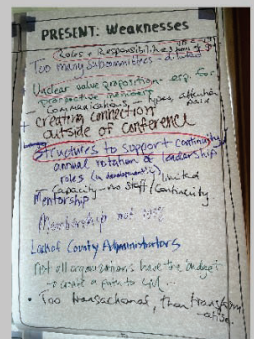 PRESENT: Weaknesses
Roles + Responsibilities
Too many subcommittees - diluted
Unclear value proposition - esp. for
prospective members
Communications - types, attention
+ Creating connection
outside of conference
Structures to support continuity
annual rotation of leadership
roles (in development)
Capacity - no staff/limited
Continuity
Mentorship
Membership not
Lack of County Administrators
Not all organizations have the budget
to create a path to
• Too transactional, than transform
-ative.